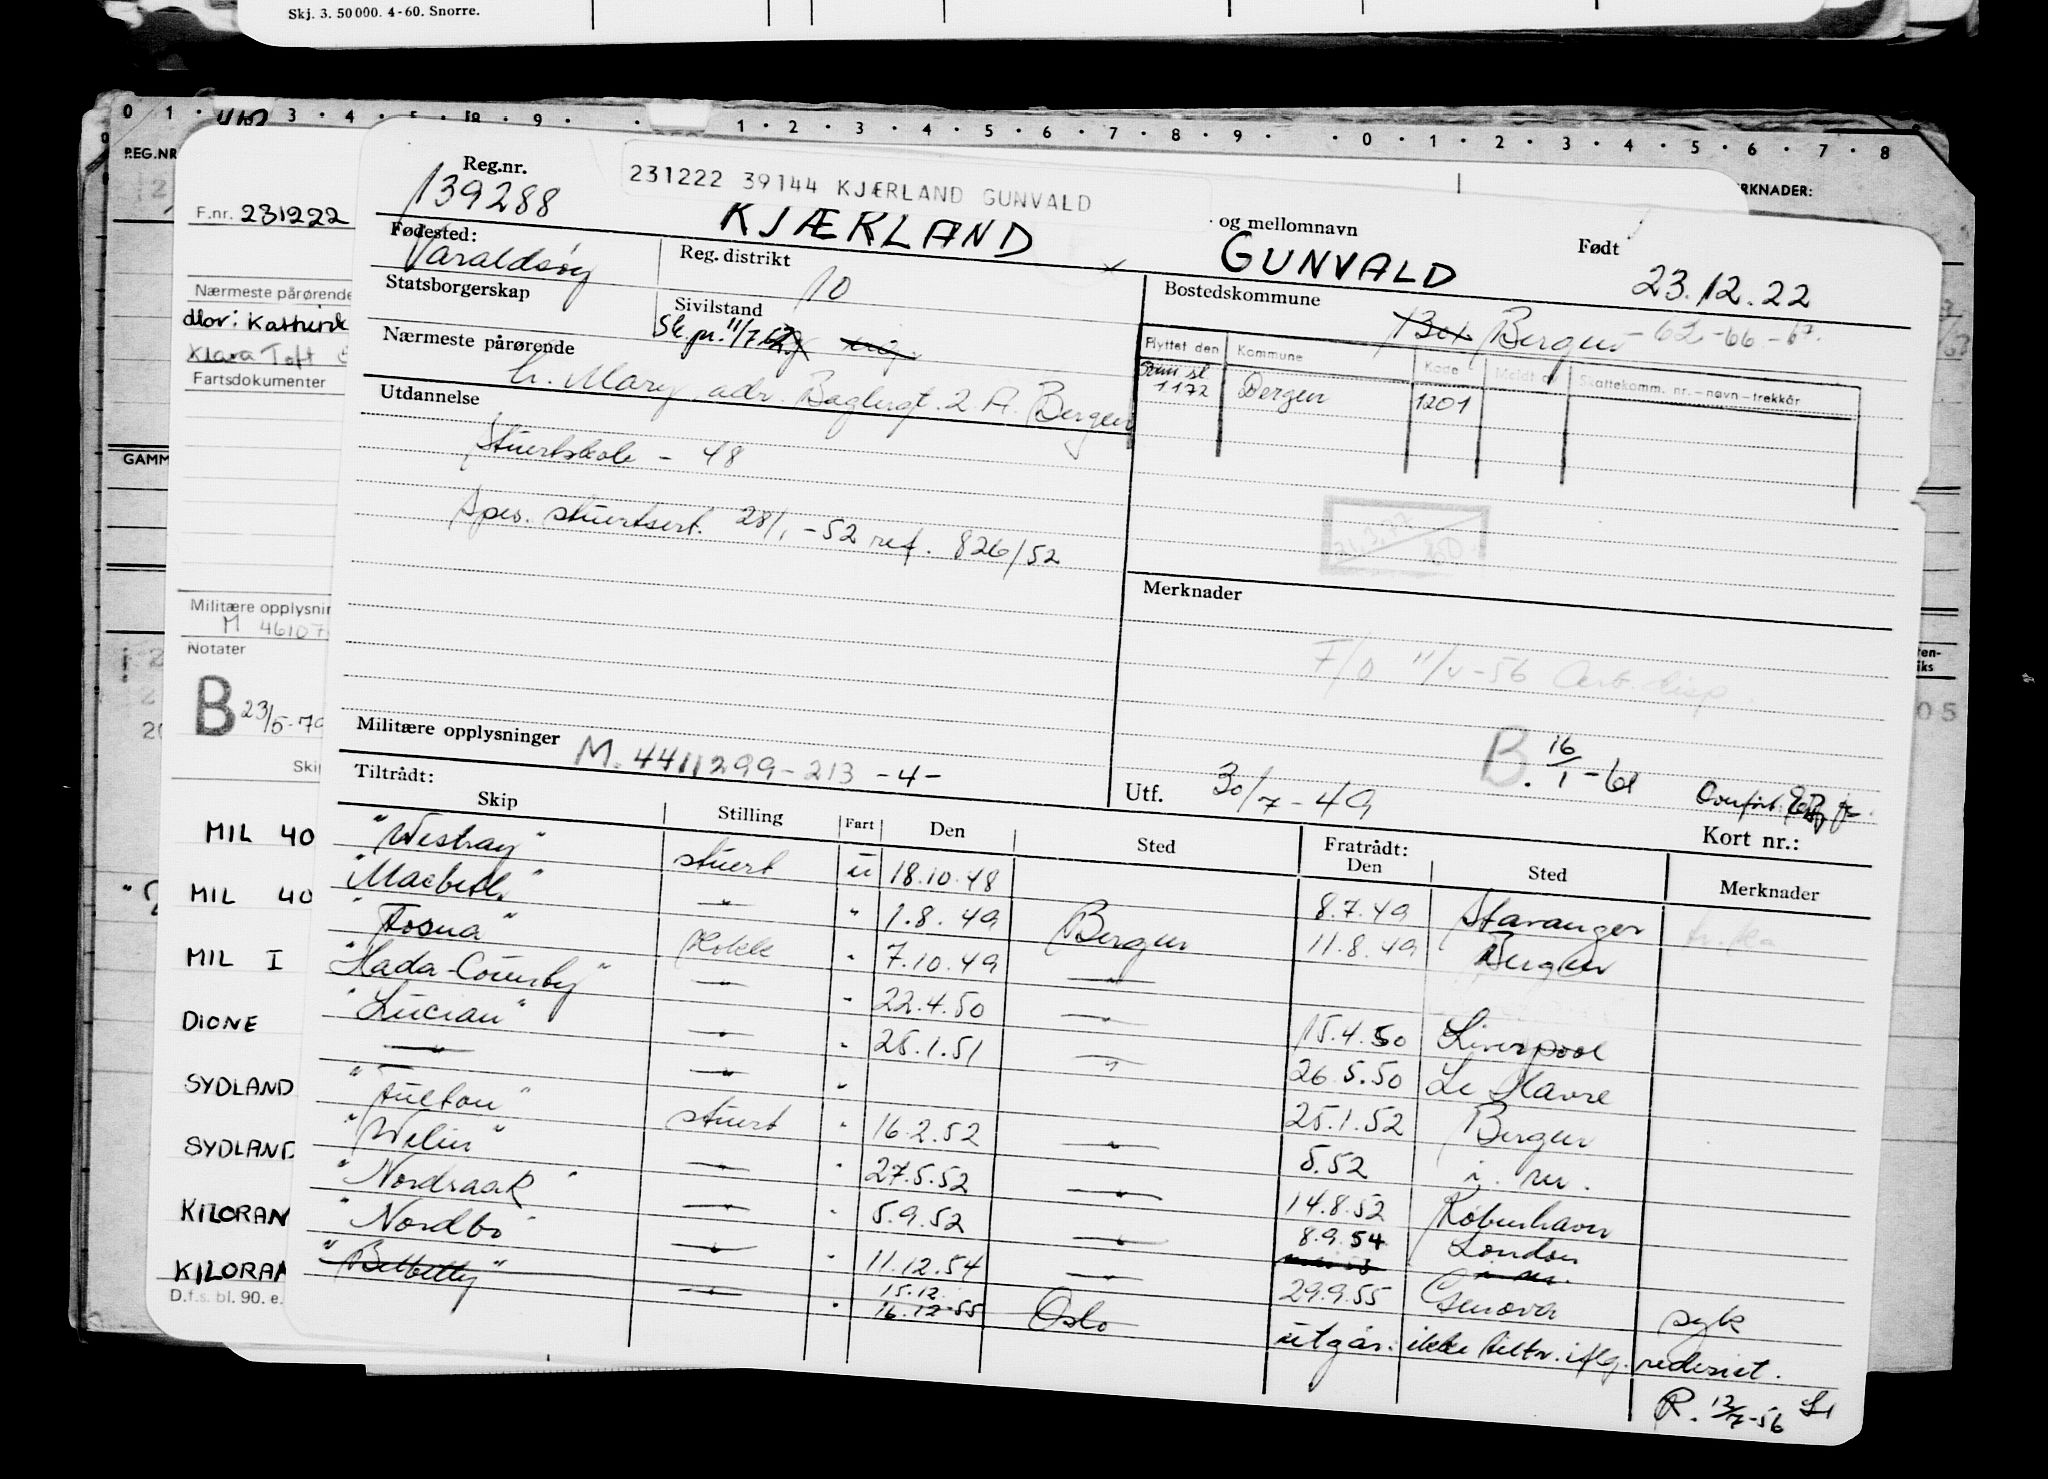 Skj. 3. 50 000. 4-60. Snorre.
0 1 3 4 5 8 9 1 2 3 4 5 6 7 8 9 0 1 2 3 4 5 6 7 8
REG.NR
RKNADER:
F.nr. 231222
Nærmeste pårørende
Mor: Kathrine
Klara Toft
Fartsdokumenter
GAMM
Militære opplysnin
M 46107
Notater
B 23/5-79
Skip
MIL 40
MIL 40
MIL I
DIONE
SYDLAND
SYDLAND
KILORAN
KILORAN
D.f.s. bl. 90. e.
Reg.nr. 139288
231222 39144 KJÆRLAND GUNVALD
KJÆRLAND
og mellomnavn GUNVALD
Født 23.12.22
Fødested: Varaldsøy
Reg. distrikt 10
Bostedskommune Bergen - 62 - 66 - 67.
Statsborgerskap
Sivilstand
Sk. pr. 11/7
Flyttet den Kommune Kode Meldt av Skattekomm. nr. – navn – trekkår
1172 Bergen 1201
Nærmeste pårørende
h. Mary, adr. Baglergt. 2 A. Bergen
Utdannelse
Stuertskole - 48
Spes. stuertsert. 28/1 -52 ref. 826/52
Merknader
F/O 11/4-56 Arb. disp.
B. 16/1 - 61
Militære opplysninger M. 4411299-213 -4-
Utf. 30/7 - 49
Kort nr.:
Tiltrådt: Fratrådt:
Skip Stilling Fart Den Sted Den Sted Merknader
"Westray" stuert u 18.10.48 8.7.49 Stavanger
"Macbeth" " " 1.8.49 Bergen 11.8.49 Bergen
"Fosna" Kokk " 7.10.49 " 15.4.50 Liverpool
"Hada-County" " " 22.4.50 " 26.5.50 Le Havre
"Lucian" " " 25.1.51 " 25.1.52 Bergen
" " "
"Fulton" stuert " 16.2.52 " 5.52
"Welin" " " 27.5.52 " 14.8.52 København
"Nordraak" " " 5.9.52 " 8.9.54 London
"Nordbo" " " 11.12.54 " 29.9.55 Genova syk
"Belbetty" " " 15.12. 16.12-55 Oslo utgår: ikke tiltr. iflg. rederiet.
R. 12/4-56